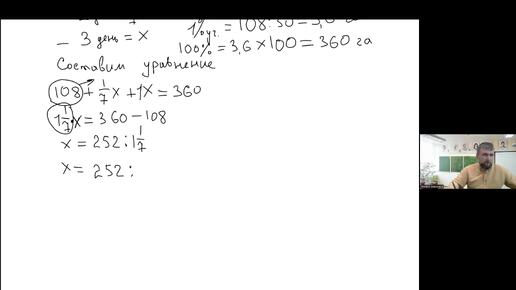 – 3 день = x
1% уч. = 108 : 30 = 3,6 га
100% = 3,6 × 100 = 360 га
Составим уравнение
108 + 1/7 x + 1x = 360
1 1/7 x = 360 – 108
x = 252 : 1 1/7
x = 252 :